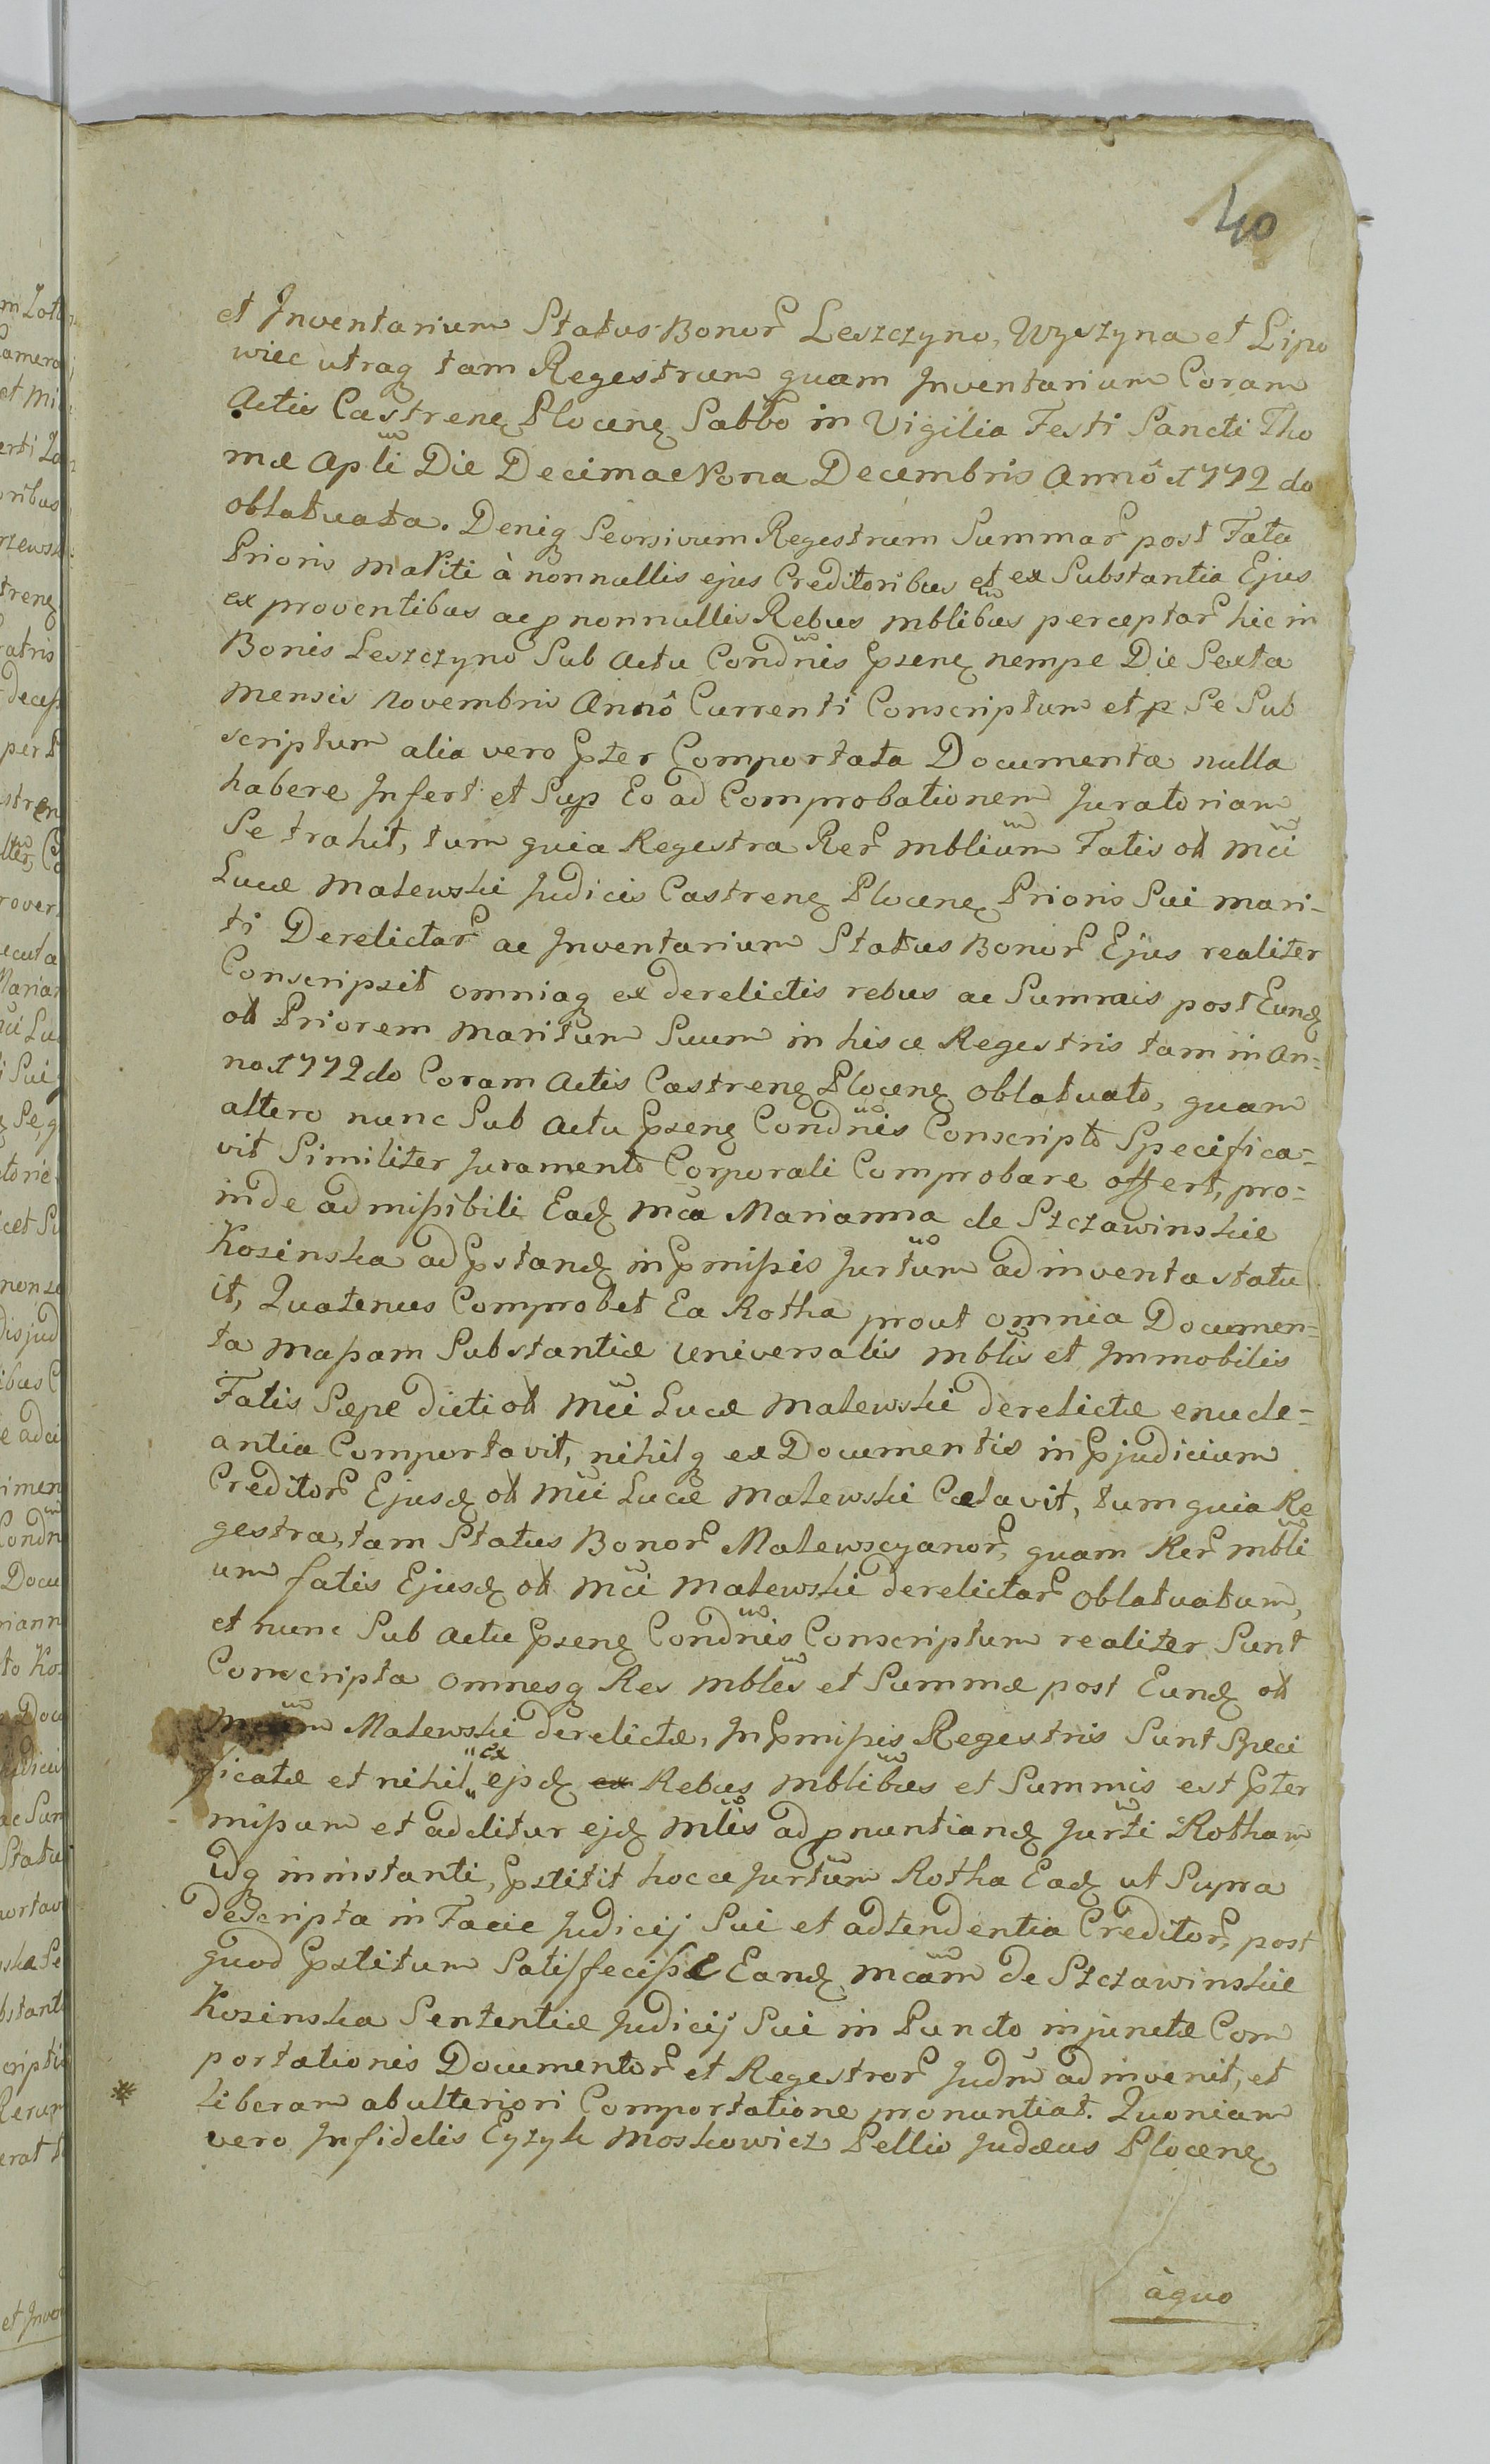 40
et Inventarium Status Bonor Leszczyno, Wyszyna et Lipo
wiec utraq tam Regestrum quam Inventarium Coram
Actis Castren Plocen Sabbo in Vigilia Festi Sancti Tho
mæ Apli Die Decima Nona Decembris Annô 1772 do
oblatuata. Deniq Seorsivum Regestrum Summar post Fata
Prioris Mariti à nonnullis ejus Creditoribus et ex Substantia Ejus
ex proventibus ac p nonnullis Rebus mblibus perceptar hic in
Bonis Leszczyno Sub Actu Condnis Psen nempe Die Sexta
Mensis Novembris Annô Currenti Conscriptum et p Se Sub
scriptum alia vero Pter Comportata Documenta nulla
habere Infert et Sup Eo ad Comprobationem Juratoriam
Se trahit, tum quia Regestra Rer mblium Fatis ol Mci
Lucæ Malewski Judicis Castren Plocen Prioris Sui Mari-
ti Derelictar ac Inventarium Status Bonor Ejus realiter
Conscripsit omniaq ex derelictis rebus ac Summis post Eund
ol Priorem Maritum Suum in hisce Regestris tam in An-
no 1772 do Coram Actis Castren Plocen oblatuato, quam
altero nunc Sub Actu Psen Condnis Conscripto Specifica-
vit Similiter Juramento Corporali Comprobare offert, pro-
inde admißibili Ead Mca Marianna de Szczawinskie
Kosinska ad Pstand in Pmißis Jurtum adinventa statu
it, Quatenus Comprobet Ea Rotha prout omnia Documen-
ta Maßam Substantiæ Universalis mblis et Immobilis
Fatis Sæpe dicti ol Mci Lucæ Malewski derelictæ enucle-
antia Comportavit, nihilq ex Documentis in Pjudicium
Creditor Ejusd ol Mci Lucæ Malewski Celavit, tum quia Re
gestra, tam Status Bonor Malewscyanor, quam Rer mbli
um fatis Ejusd ol Mci Malewski derelictar oblatuatum,
et nunc Sub Actu Psen Condnis Conscriptum realiter Sunt
Conscripta omnesq Res mbles et Summæ post Eund ol
Mcum Malewski derelictæ, In Pmißis Regestris Sunt Speci
ficatæ et nihil ex ejsd ex Rebus mblibus et Summis est Pter
mißum et additur ejd Mlis ad pnuntiand Jurti Rotham
Idq in instanti, Pstitit hocce Jurtum Rotha Ead ut Supra
descripta in Facie Judicij Sui et adtendentia Creditor, post
quod Pstitum Satisfecißæ Eand Mcam de Szczawinskie
Kosinska Sententiæ Judicij Sui in Puncto injunctæ Com
portationis Documentor et Regestror Judm adinvenit, et
* liberam ab ulteriori Comportatione pronuntiat. Quoniam
vero Infidelis Eyzyk Moskowicz Pellio Judæus Plocen
àquo